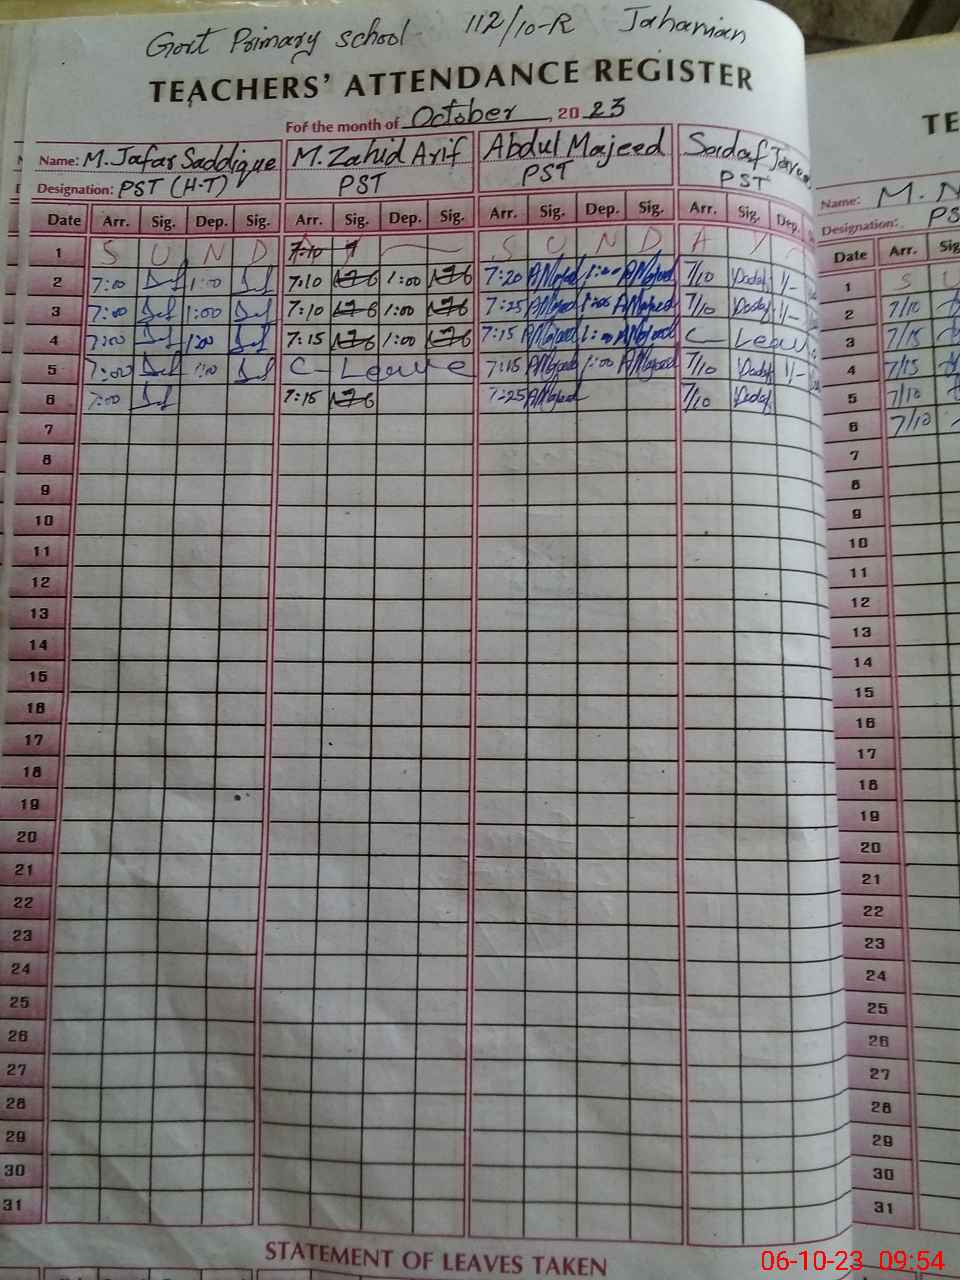 Govt Primary school 112/10-R Jahanian
TEACHERS' ATTENDANCE REGISTER
For the month of October, 2023
Name: M. Jafar Saddique M. Zahid Arif Abdul Majeed Sadaf
Designation: PST (H-T) PST PST PST
Date Arr. Sig. Dep. Sig. Arr. Sig. Dep. Sig. Arr. Sig. Dep. Sig. Arr. Sig. Dep.
1 S U N D S U N D A Y
2 7:00 1:00 7:10 1:00 7:20 AMajeed 1:00 AMajeed 7/10 1/-
3 7:00 1:00 7:10 1:00 7:25 AMajeed 1:00 AMajeed 7/10 1/-
4 7:00 1:00 7:15 1:00 7:15 AMajeed 1:00 AMajeed C- Leave
5 7:00 1:0 C- Leave 7:15 AMajeed 1:00 AMajeed 7/10 1/-
6 7:00 7:15 7:25 AMajeed 7/10
7
8
9
10
11
12
13
14
15
16
17
18
19
20
21
22
23
24
25
26
27
28
29
30
31
STATEMENT OF LEAVES TAKEN
TE
Name: M.
Designation: PS
Date Arr. Sig
1 S U
2 7/10
3 7/15
4 7/15
5 7/10
6 7/10
7
8
9
10
11
12
13
14
15
16
17
18
19
20
21
22
23
24
25
26
27
28
29
30
31
06-10-23 09:54